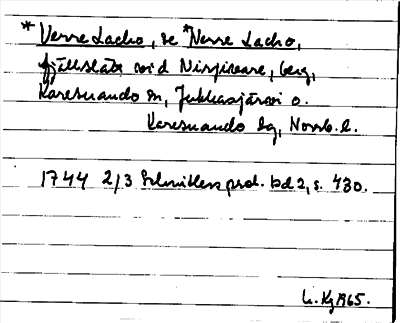 *Verre Lacho, se *Nerre Lacho,
fjällslätt vid Nirpivare, berg,
Karesuando sn, Jukkasjärvi o.
Karesuando tg, Norrb. l.
1744 2/3 Schnitlers prot. bd 2, s. 430.
L. Kg 1965.